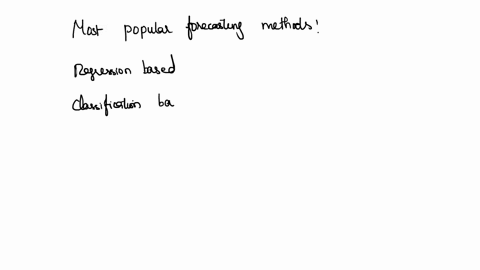 Most popular forecasting methods!
Regression based
Classification ba